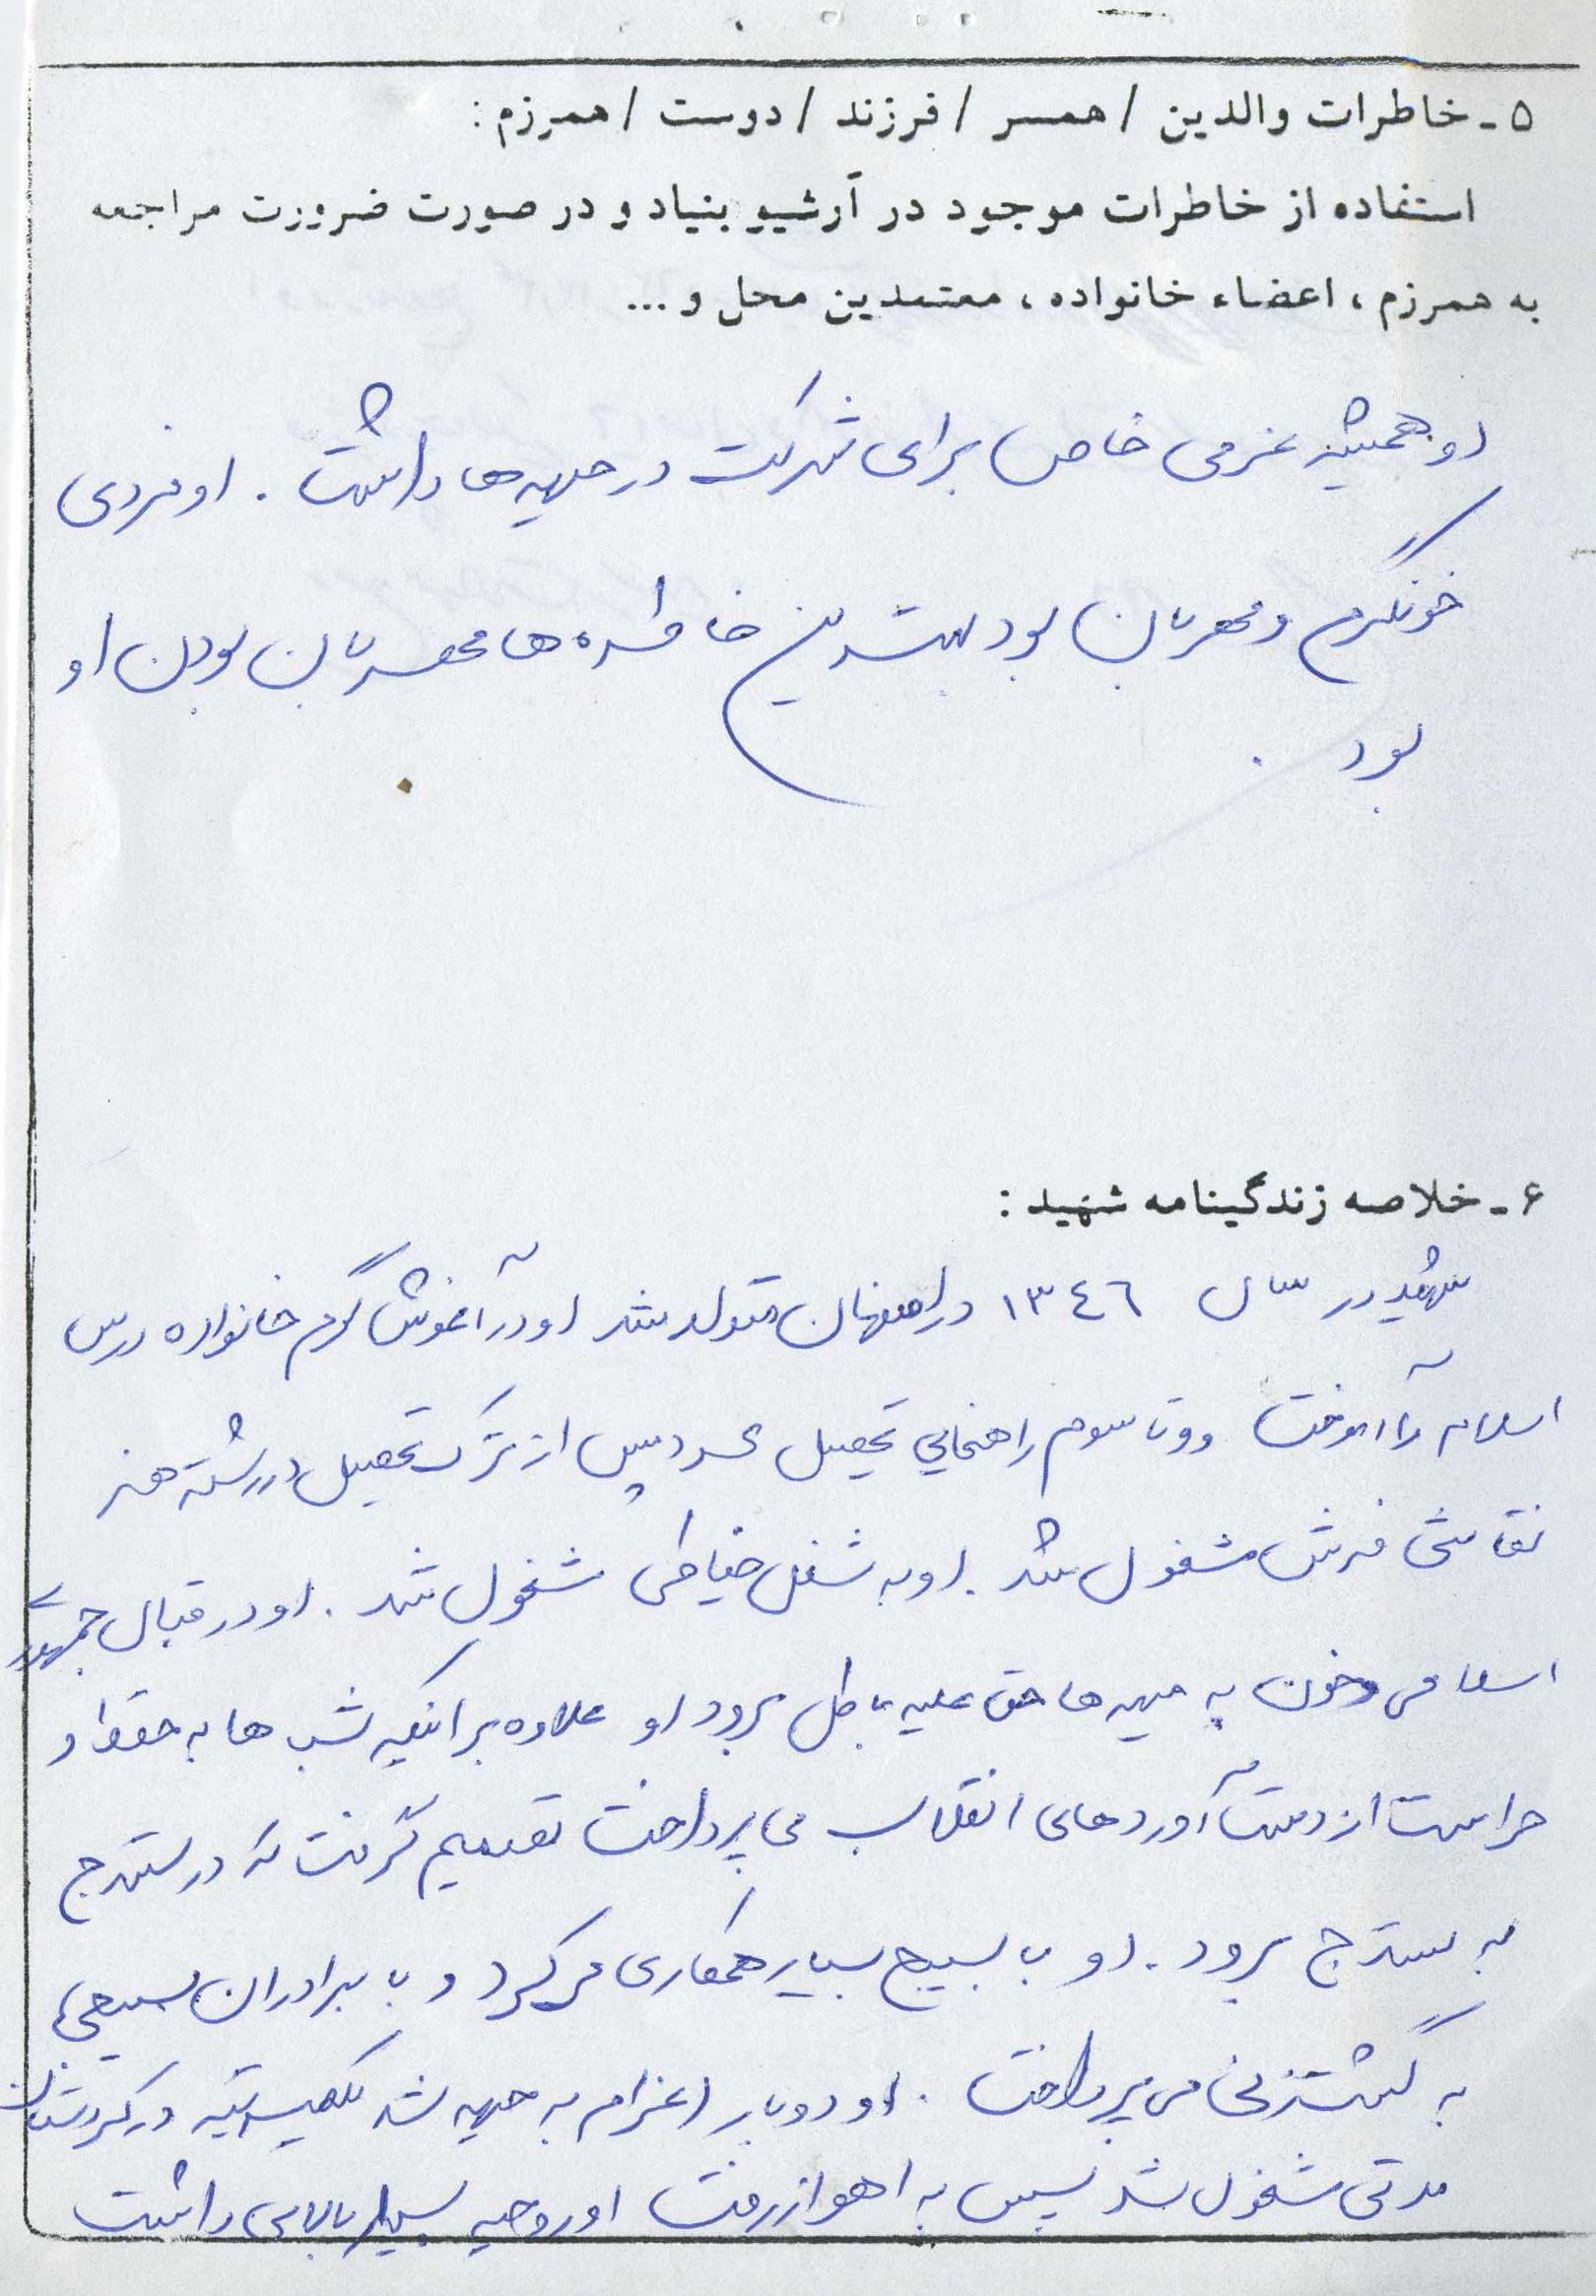 ۵ - خاطرات والدین / همسر / فرزند / دوست / همرزم :
استفاده از خاطرات موجود در آرشیو بنیاد و در صورت ضرورت مراجعه
به همرزم ، اعضاء خانواده ، معتمدین محل و ...
او همیشه عزمی خاص برای شرکت در جبهه ها داشت . او فردی
خونگرم و مهربان بود بهترین خاطره ها مهربان بودن او
بود .
۶ - خلاصه زندگینامه شهید :
شهید در سال ۱۳٤٦ در اصفهان متولد شد او در آغوش گرم خانواده درس
اسلام را آموخت و تا سوم راهنمایی تحصیل کرد و پس از ترک تحصیل در رشته هنر
نقاشی فرش مشغول شد . او به شغل خیاطی مشغول شد . او در قبال جمهوری
اسلامی و خون به جبهه ها حق علیه باطل برود او علاوه بر اینکه شب ها به حفظ و
حراست از دست آوردهای انقلاب می پرداخت تصمیم گرفت که در سنندج
به سنندج برود . او با بسیج بسیار همکاری می کرد و با برادران بسیجی
به گشت زنی می پرداخت . او دوبار اعزام به جبهه شد یکبار در کردستان
مدتی مشغول شد سپس به اهواز رفت او روحیه بسیار بالایی داشت